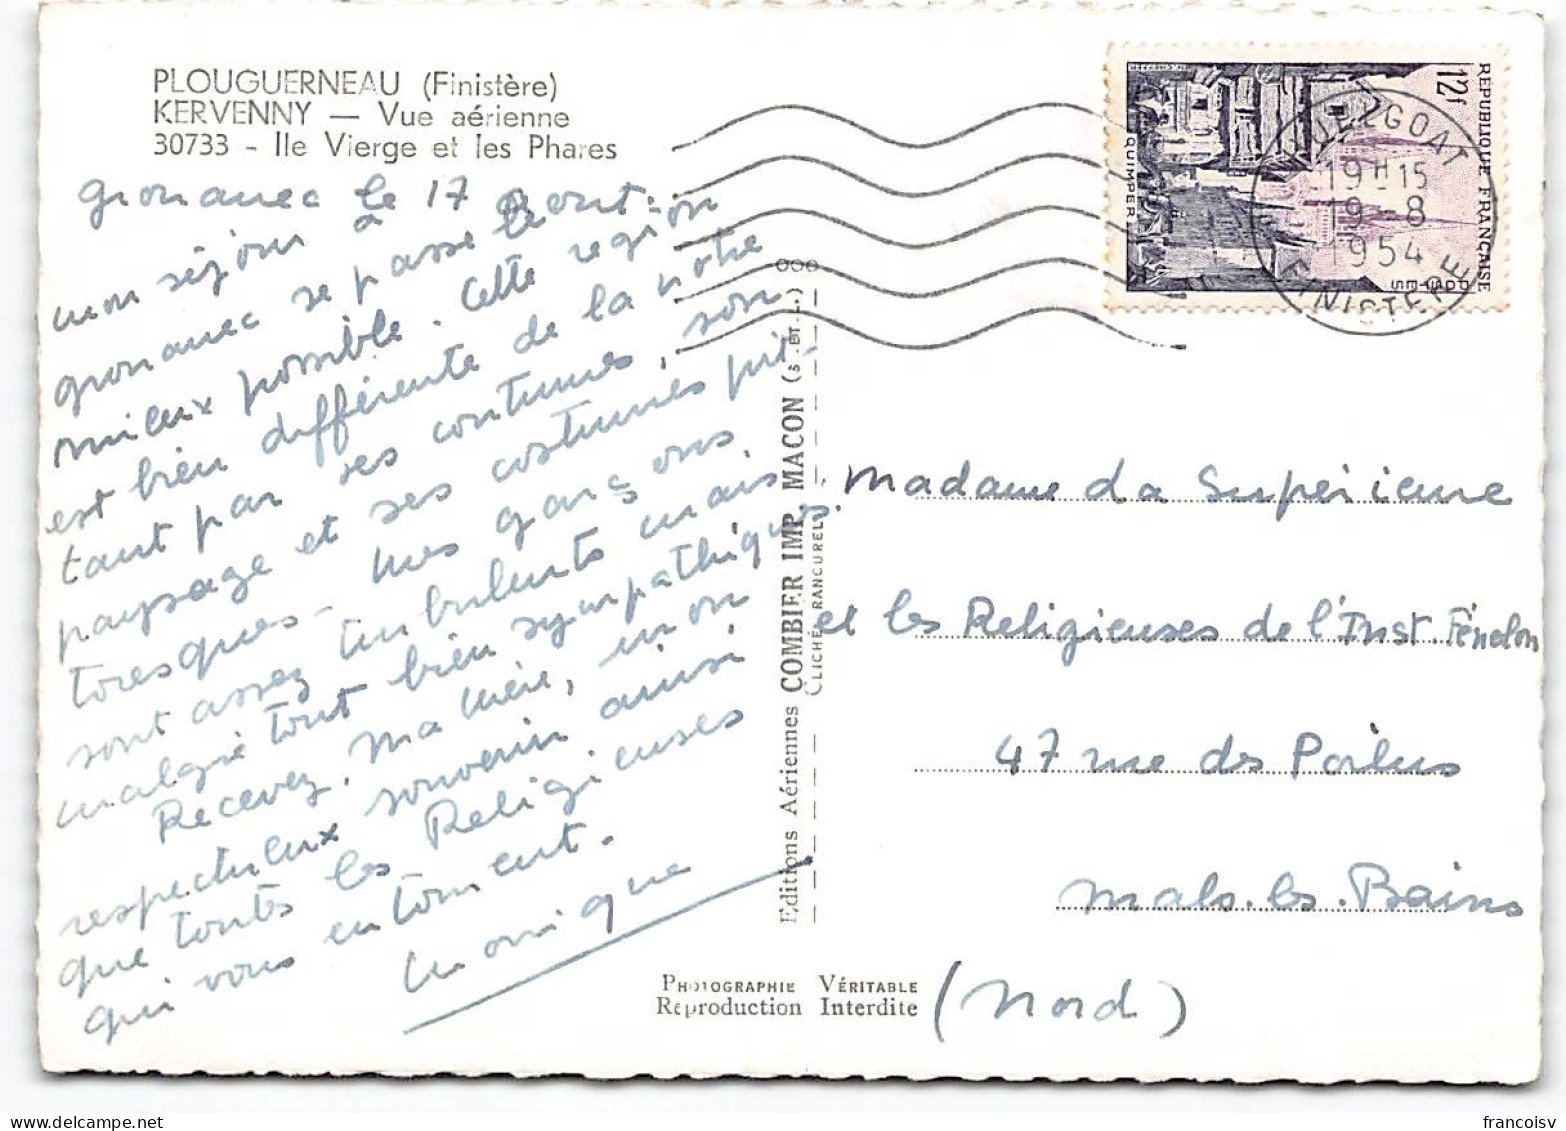 PLOUGUERNEAU (Finistère)
KERVENNY — Vue aérienne
30733 - Ile Vierge et les Phares
gronanec le 17 Août.
mon séjour à
gronanec se passe le
mieux possible. Cette région
est bien différente de la notre
tant par ses coutumes, son
paysage et ses costumes pit-
toresques - mes garçons
sont assez turbulents mais
malgré tout bien sympathiques.
Recevez, Ma Mère, mon
respectueux souvenir ainsi
que toutes les Religieuses
qui vous entourent.
Monique
Editions Aériennes COMBIER IMP MACON (S.-ET-L.)
CLICHÉ RANCUREL
PHOTOGRAPHIE VÉRITABLE
Reproduction Interdite
REPUBLIQUE FRANÇAISE
12f
POSTES
QUIMPER
HUELGOAT
19H15
19-8
1954
FINISTERE
Madame La Supérieure
et les Religieuses de l'Inst. Fénelon
47 rue des Poilus
Malo.les.Bains
(Nord)
francoisv